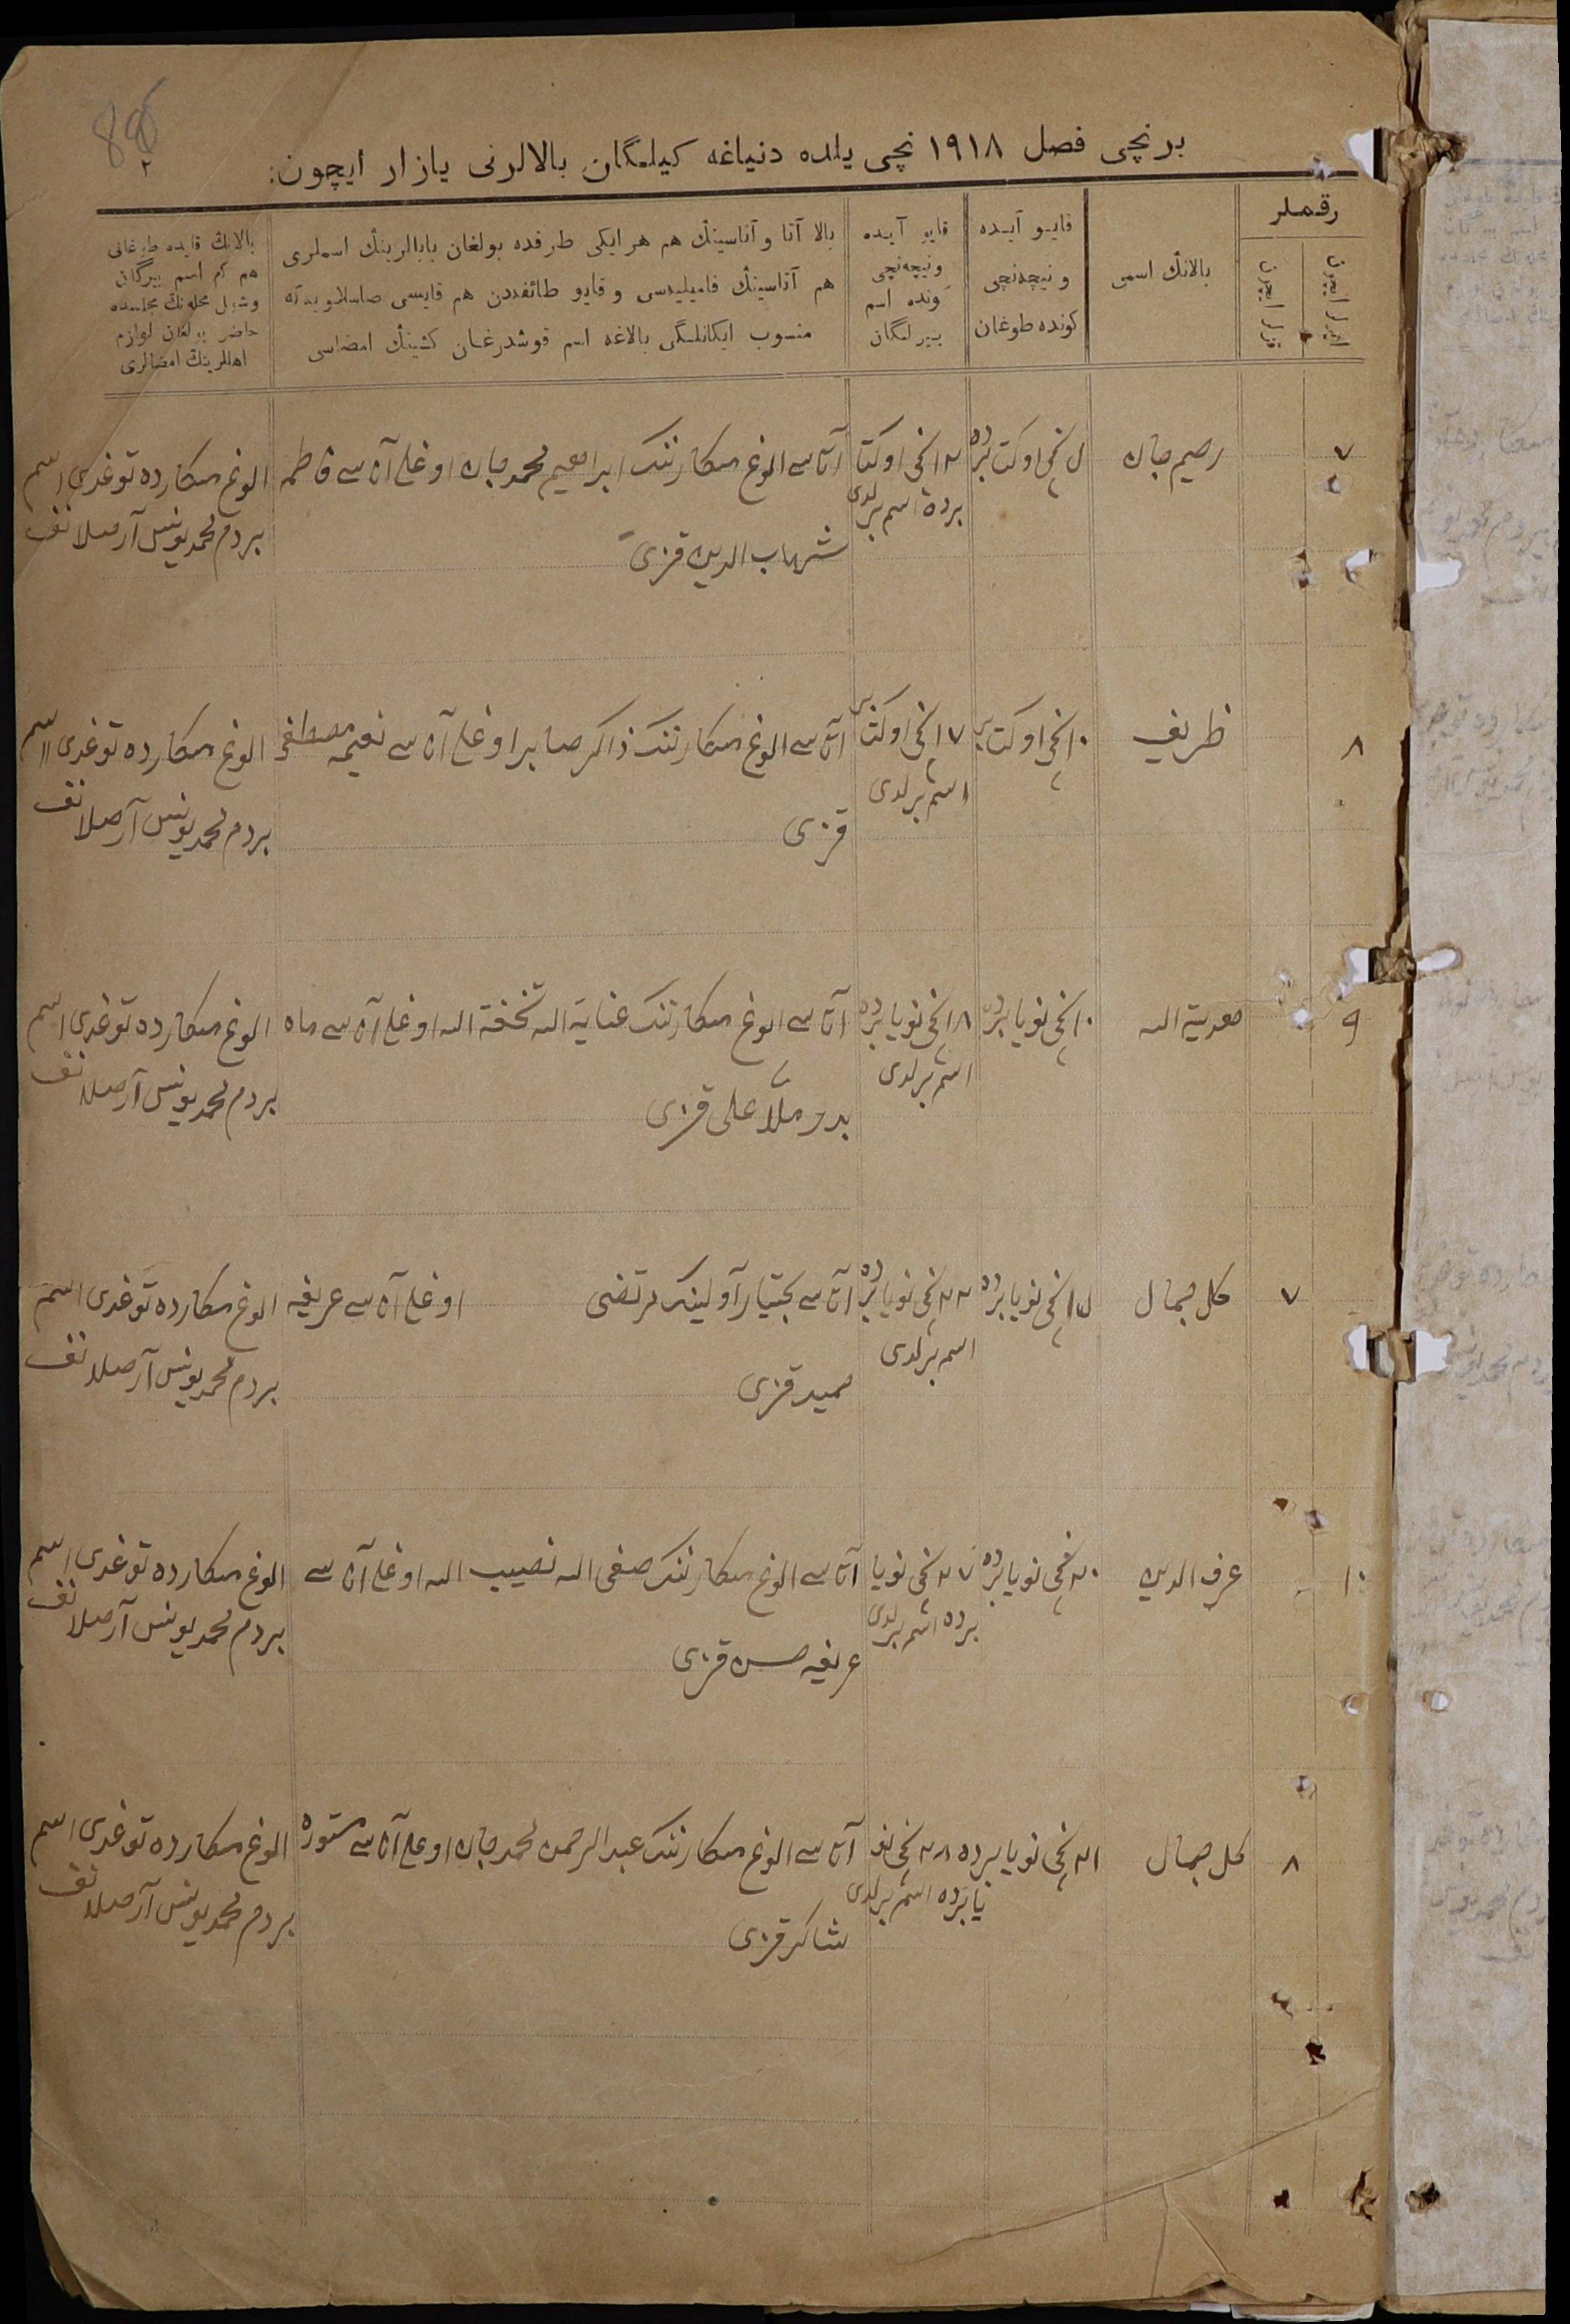 88
٢
برنچی فصل ١٩١٨ نچی یلده دنیاغه کیلمگان بالالرنی یازار ایچون:
رقملر
ایرلر ایچون
قزلر ایچون
بالانڭ اسمی
قایو آیده
و نیچه‌نچی
کونده طوغان
قایو آیده
و نیچه‌نچی
کونده اسم
بیرلگان
بالا آتا و آناسینڭ هم هر ایکی طرفده بولغان بابالرینڭ اسملری
هم آتاسینڭ فامیلیه‌سی و قایو طائفه‌دن هم قایسی صاسلاویه‌گه
منسوب ایکانلگی بالاغه اسم قوشدرغان کشینڭ امضاسی
بالانڭ قایده طوغانی
هم کم اسم بیرگان
وشول محله‌نڭ مجلسده
حاضر بولغان لوازم
اهللرینڭ امضالری
٧
رحیم جان
نچی اوکتابرده
نچی اوکتا
برده اسم برلدی
آتاسی الوغ مکارننک ابراهیم محمد جان اوغلی آناسی فاطمه
شهاب الدین قزی
الوغ مکارده توغدی اسم
بردم محمد یونس آرصلانف
٨
ظریف
١٠نچی اوکتابر
١٧نچی اوکتابر
اسم برلدی
آتاسی الوغ مکارننک ذاکر صابر اوغلی آناسی نعیمه مصطفی
قزی
الوغ مکارده توغدی اسم
بردم محمد یونس آرصلانف
٩
هدیة الله
١٠نچی نویابرده
١٨نچی نویابرده
اسم برلدی
آتاسی الوغ مکارننک عنایة الله تحفة الله اوغلی آناسی ماه
بدر ملا علی قزی
الوغ مکارده توغدی اسم
بردم محمد یونس آرصلانف
٧
گل جمال
نچی نویابرده
نچی نویابرده
اسم برلدی
آتاسی بختیار آولینک مرتضی اوغلی آناسی عریفه
حمید قزی
الوغ مکارده توغدی اسم
بردم محمد یونس آرصلانف
١٠
عرف الدین
٢٠نچی نویابرده
٢٧نچی نویا
برده اسم برلدی
آتاسی الوغ مکارننک صفی الله نصیب الله اوغلی آناسی
عریفه حسن قزی
الوغ مکارده توغدی اسم
بردم محمد یونس آرصلانف
٨
گل جمال
٢١نچی نویابرده
٢٨نچی نو
یابرده اسم برلدی
آتاسی الوغ مکارننک عبد الرحمن محمد جان اوغلی آناسی مستوره
شاکر قزی
الوغ مکارده توغدی اسم
بردم محمد یونس آرصلانف